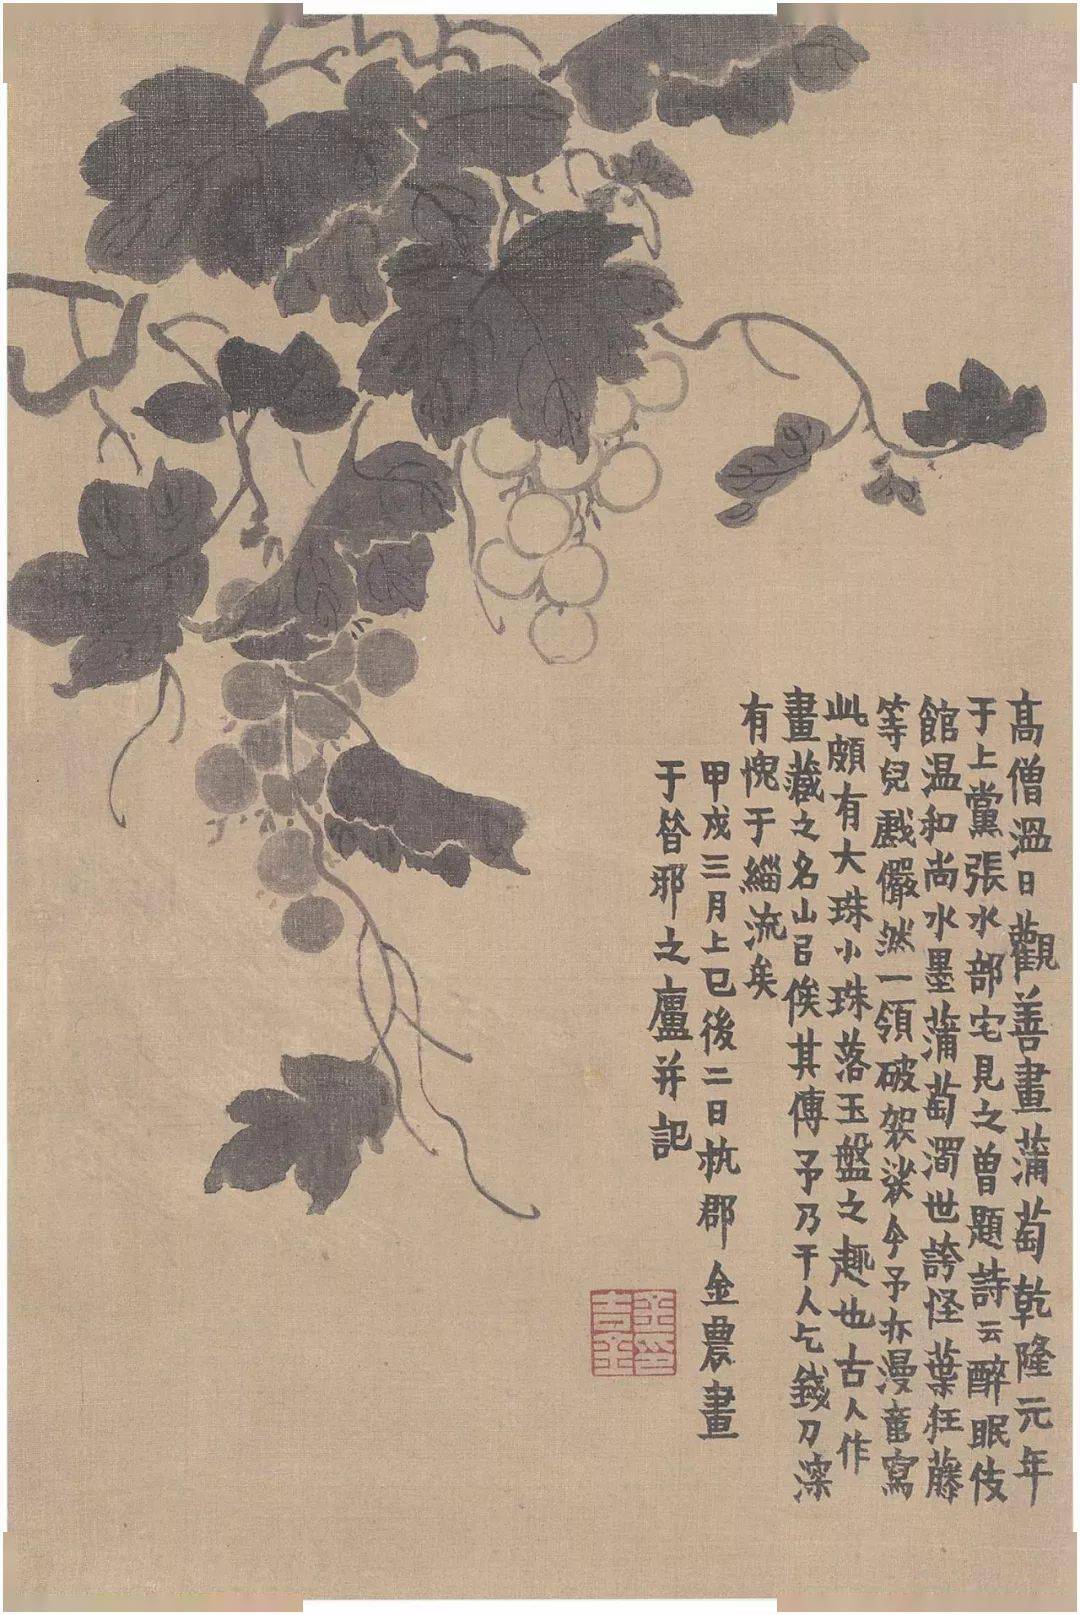 高僧溫日觀善畫蒲萄乾隆元年
于上黨張水部宅見之曾題詩云醉眠伎
館温和尚水墨蒲萄濁世誇怪葉狂藤
等兒戲儼然一領破袈裟今予亦漫寫
此頗有大珠小珠落玉盤之趣也古人作
畫藏之名山㠯俟其傳予乃干人乞錢刀深
有愧于緇流矣
甲戌三月上巳後二日杭郡金農畫
于昔邪之廬并記
金印
吉金